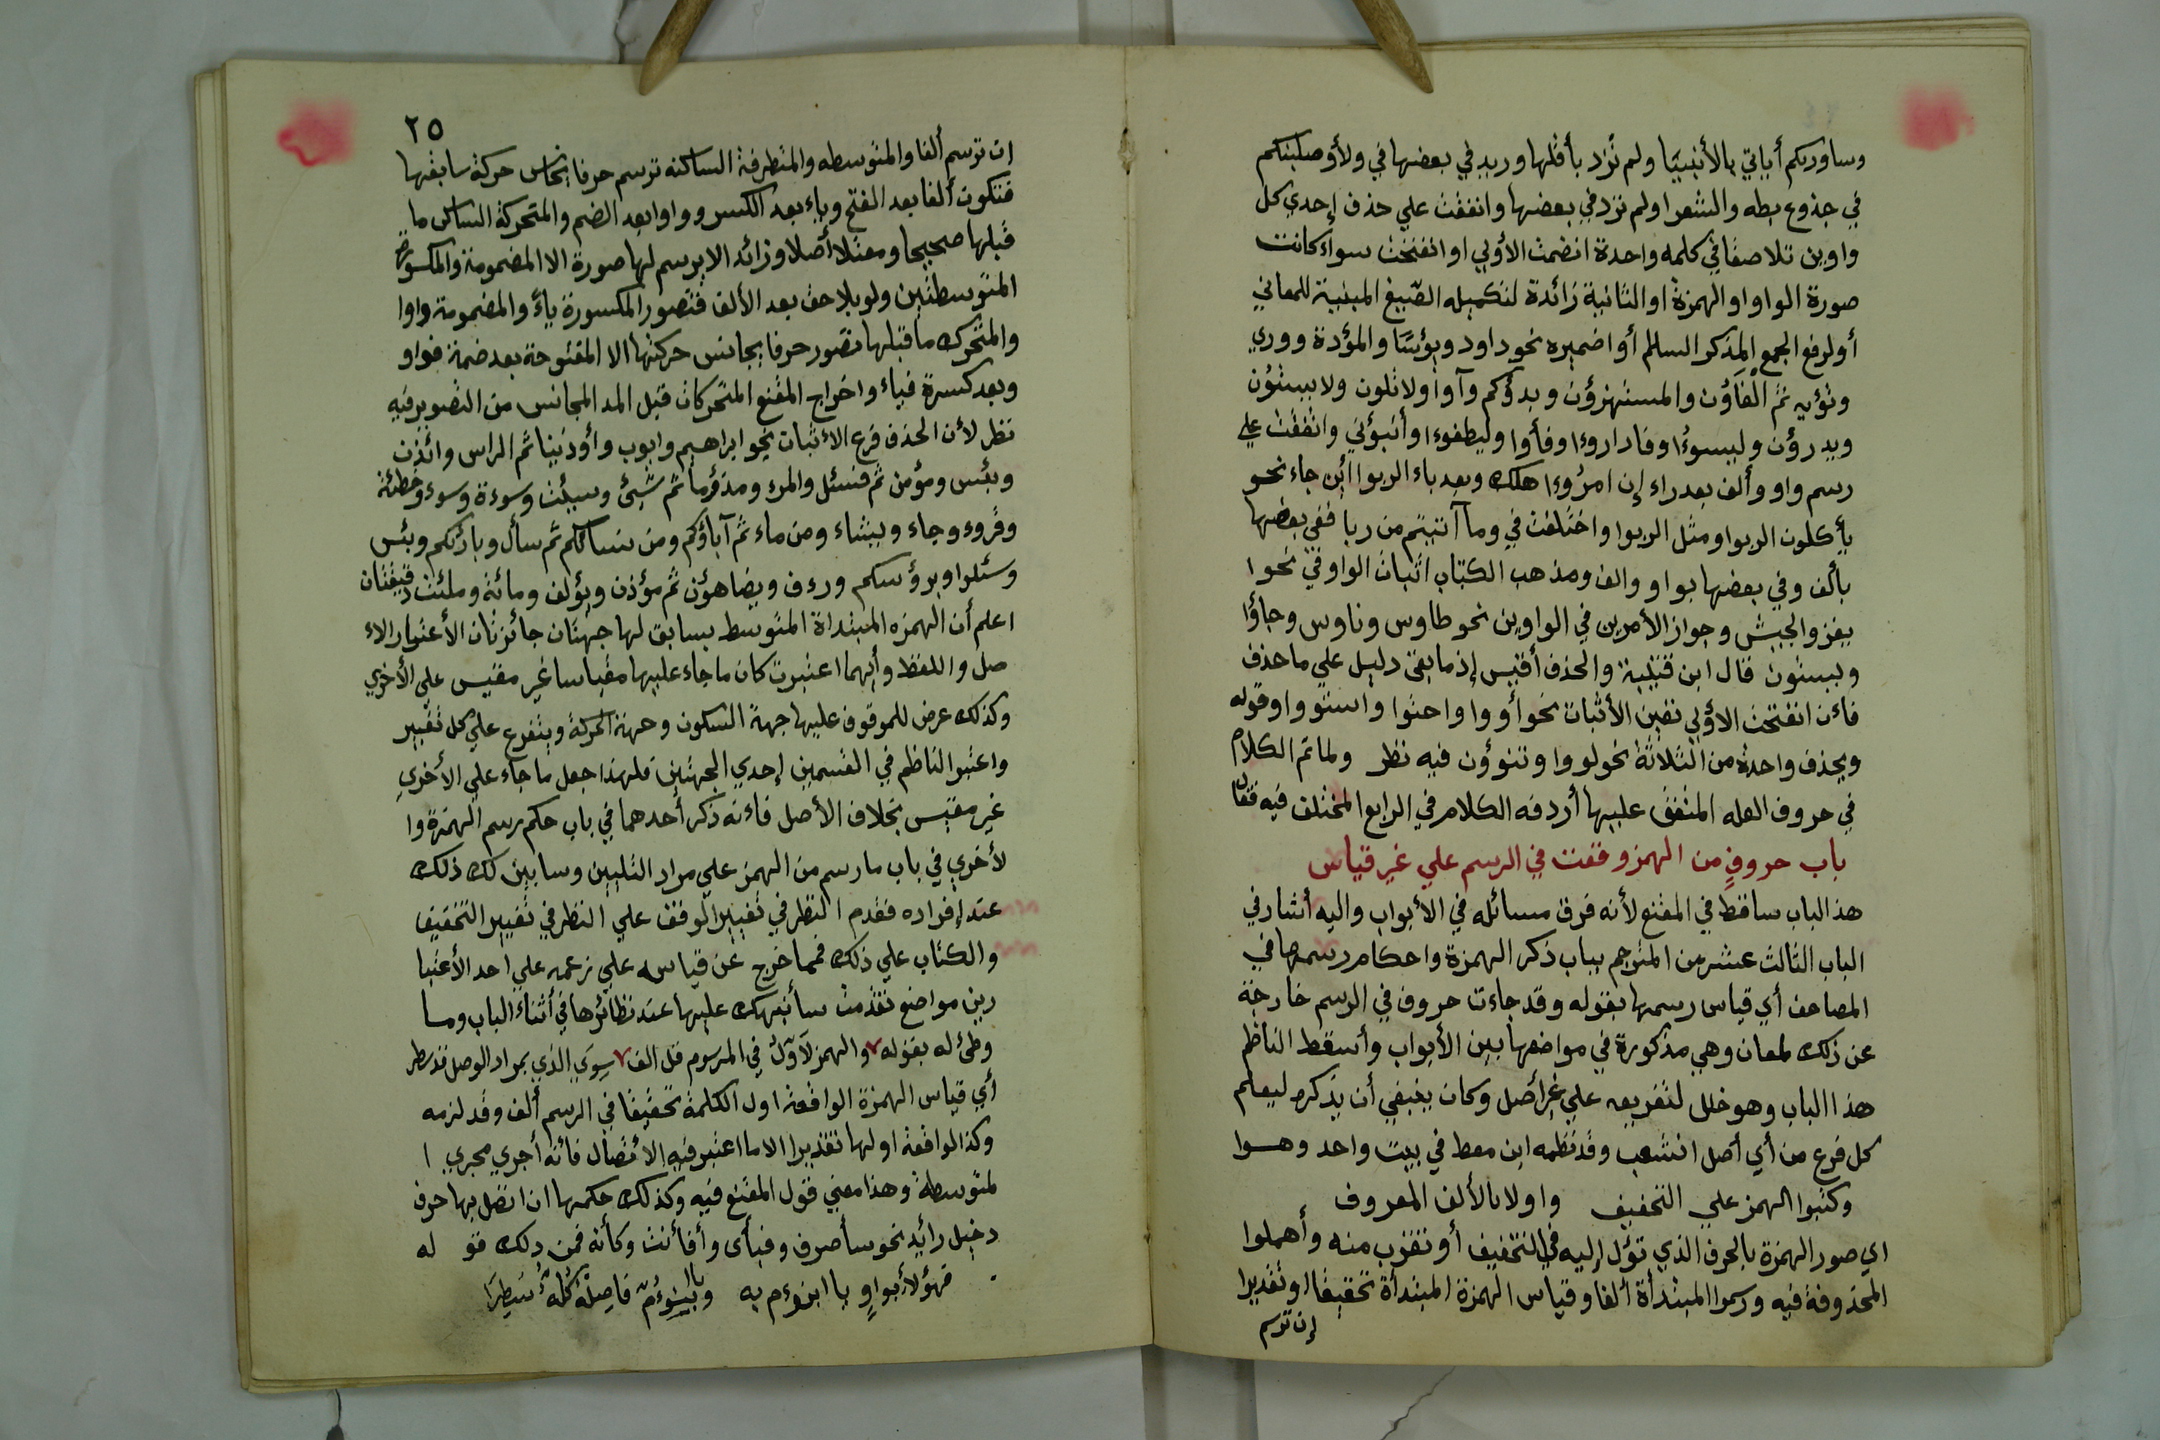 وساوريكم أياتي بالأنبيا ولم تزد بأقلها وريد في بعضها في ولأوصلبنكم
في جذوع بطه والشعرا ولم تزد في بعضها واتفقت علي حذف إحدي كل
واوين تلاصقا في كلمه واحدة انضمت الأولي او انفتحت سواء كانت
صورة الواو او الهمزة او الثانية زائدة لتكميله الصيغ المبنية للمعاني
أو لرفع الجمع المذكر السالم أو اضميره نحو داود ويؤسا والمؤدة ووري
وتؤيه ثم الغاون والمستهزؤن وبدؤكم وآووا ولا تلون ولا يستون
ويدرؤن وليسوءا وفاداروءا وفأوا وليطفوءا وأنبؤني واتفقت علي
رسم واو وألف بعد راء إن امرؤءا هلك وبعد باء الربوا أين جاء نحو
يأكلون الربوا ومثل الربوا واختلفت في وما آتيتم من ربا ففي بعضها
بألف وفي بعضها بواو والف ومذهب الكتاب اثبات الواو في نحو ا
يغزو الجيش وجواز الأمرين في الواوين نحو طاوس وناوس وجاؤا
ويستون قال ابن قتيبة والحذف أقيس إذ ما بقي دليل علي ما حذف
فاءن انفتحت الأولي تعين الأثبات نحو أووا واحتوا واستووا وقوله
ويحذف واحدة من الثلاثة نحو لووا وتنوؤن فيه نظر ولما تم الكلام
في حروف العله المتفق عليها أردفه الكلام في الرابع المختلف فيه فقال
باب حروف من الهمز وقعت في الرسم علي غير قياس
هذ الباب ساقط في المقنع لأنه فرق مسائله في الأبواب واليه أشار في
الباب الثالث عشر من المترجم بباب ذكر الهمزة واحكام رسمها في
المصاحف أي قياس رسمها بقوله وقد جاءت حروف في الرسم خارجة
عن ذلك لمعان وهي مذكورة في مواضعها بين الأبواب وأسقط الناظم
هذا الباب وهو خلل لتفريعه علي غير أصل وكان ينبغي أن يذكره ليعلم
كل فرع من أي أصل انشعب وقد نظمه ابن معط في بيت واحد وهوا
وكتبوا الهمز علي التخفيف واولا بالألف المعروف
اي صور الهمزة بالحرف الذي تؤل إليه في التخفيف أو تقرب منه وأهملوا
المحذوفة فيه ورسموا المبتدأة ألفا وقياس الهمزة المبتدأة تحقيقا او تقديرا
إن ترسم
٢٥
ان ترسم ألفا والمتوسطه والمتطرفة الساكنه ترسم حرفا يجانس حركة سابقها
فتكون ألفا بعد الفتح وياء بعد الكسر وواوا بعد الضم والمتحركة الساكن ما
قبلها صحيحا ومعتلا أصلا وزائد الا يرسم لها صورة الا المضمومة والمكسورة
المتوسطتين ولو بلاحق بعد الألف فتصور المكسورة ياء والمضمومة واوا
والمتحرك ما قبلها تصور حرفا يجانس حركتها الا المفتوحة بعد ضمة فواو
وبعد كسرة فياء واخراج المقنع المتحركات قبل المد المجانس من التصوير فيه
نظر لأن الحذف فرع الاءثبات نحو ابراهيم وايوب وأوذينا ثم الراس وائذن
وبئس ومؤمن ثم فسئل والمرء ومذؤما ثم شيئ وسيئت وسوءة وسوء وخطئة
وقروء وجاء ويشاء ومن ماء ثم آباؤكم ومن نسائكم ثم سأل وبارئكم وبئس
وسئلوا وبرؤسكم ورءف ويضاهؤن ثم مؤذن ويؤلف ومائة وملئت دقيقتان
اعلم أن الهمزه المبتداة المتوسط بسابق لها جهتان جائزتان الأعتبار الاء
صل واللفظ وأيهما اعتبرت كان ما جاء عليها مقياسا غير مقيس علي الأخري
وكذلك عرض للموقوف عليها جهة السكون وجهة الحركة ويتفرع علي كل تغيير
واعتبر الناظم في القسمين إحدي الجهتين فلهذا جعل ما جاء علي الأخري
غير مقيس بخلاف الأصل فاءنه ذكر أحدهما في باب حكم رسم الهمزة وا
لأخري في باب ما رسم من الهمز علي مراد التليين وسابين لك ذلك
عند إفراده فقدم النظر في تغيير الوقف علي النظر في تغيير التخفيف
والكتاب علي ذلك فمما خرج عن قياسه علي زعمه علي احد الأعتبا
رين مواضع تقدمت سأنبهك عليها عند نظائرها في أثناء الباب وما
وطئ له بقوله والهمز لأول في المرسوم قل الف سوي الذي بمراد الوصل قد سطر
أي قياس الهمزة الواقعة اول الكلمة تحقيقا في الرسم ألف وقد لزمه
وكذا الواقعة اولها تقديرا الا ما اعتبر فيه الاءتصال فاءنه أجري مجري ا
لمتوسطة وهذا معني قول المقنع فيه وكذلك حكمها ان اتصل بها حرف
دخيل زائد نحو سأصرف وفبأي وأفأنت وكأنه فمن ذلك قو له
فهؤلاء بواو يا ابنؤم به ويا ابنؤم فاصله كله سطرا